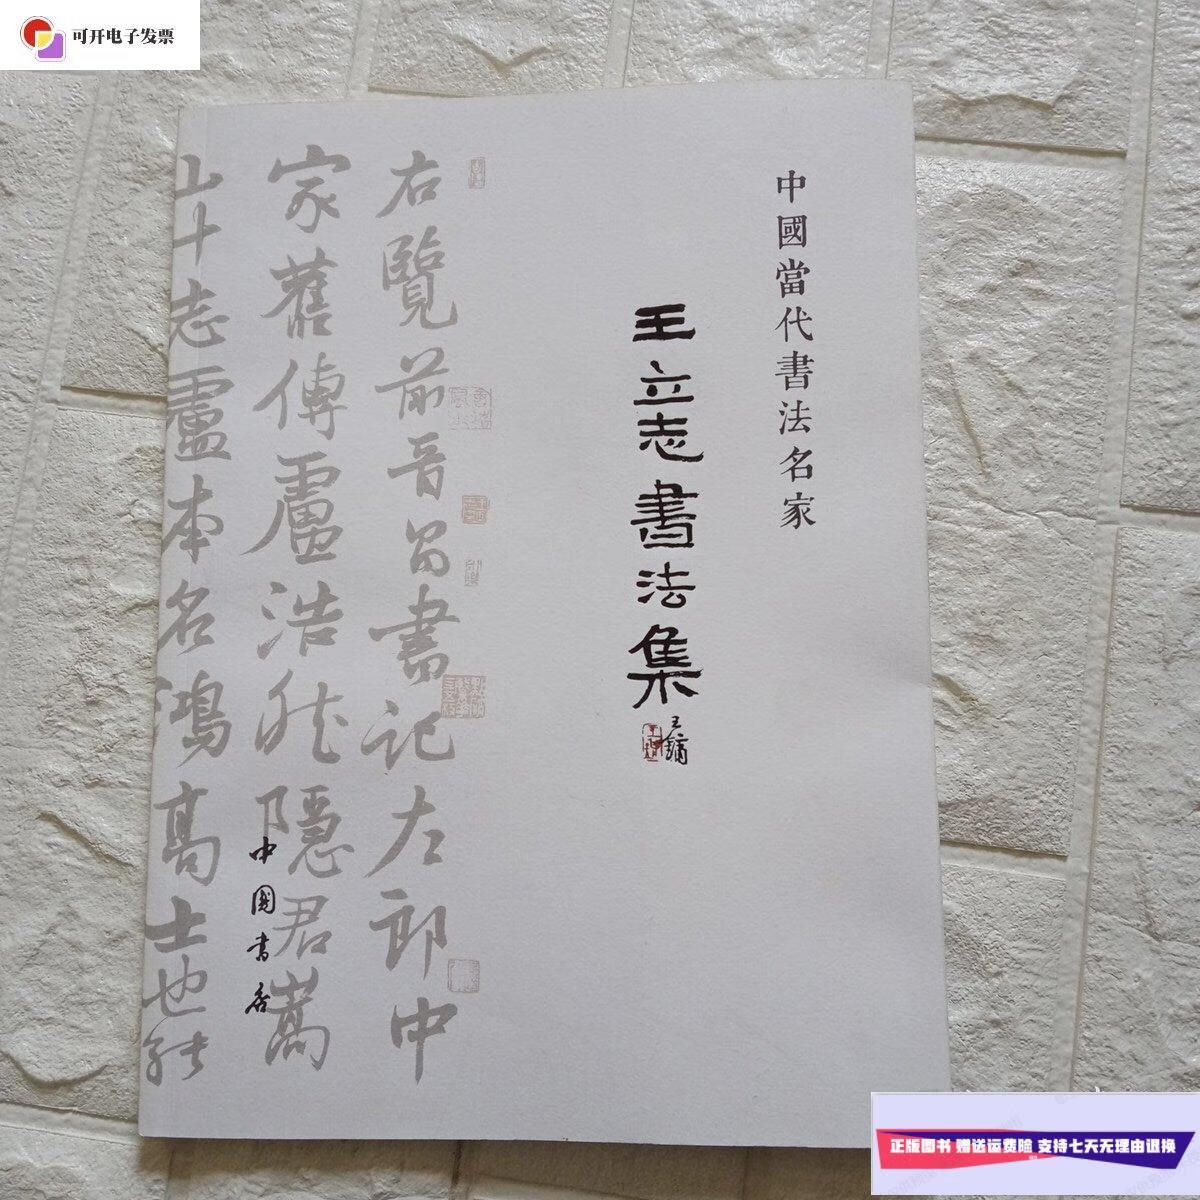 可开电子发票
中國當代書法名家
王立志書法集
王鏞
右覽前晋習書記左郎中
家舊傳盧浩然隱君嵩
山十志盧本名鴻高士也能
中國書店
正版图书 赠送运费险 支持七天无理由退换